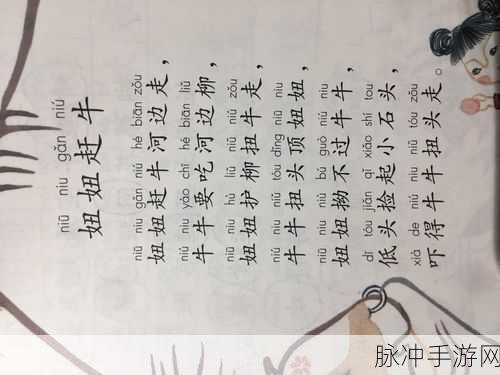 niū niu gǎn niú
妞妞赶牛
niū niu gǎn niú hé biān zǒu
妞妞赶牛河边走，
niú niu yào chī hé biān liǔ
牛牛要吃河边柳，
niū niu hù liǔ niǔ niú zǒu
妞妞护柳扭牛走，
niú niu niǔ tóu dǐng niū niu
牛牛扭头顶妞妞，
niū niu niù bú guò niú niu
妞妞拗不过牛牛，
dī tóu jiǎn qǐ xiǎo shí tou
低头捡起小石头，
xià de niú niu niǔ tóu zǒu
吓得牛牛扭头走。
脉冲手游网